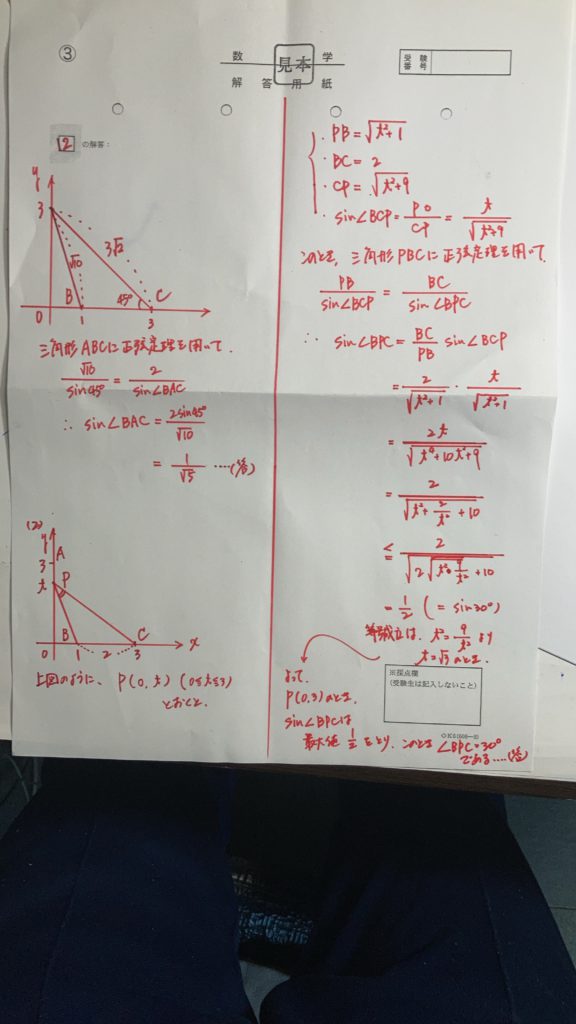 ③
数学
見本
解答用紙
受験番号
2 の解答:
y
3
3√2
√10
B
45°
C
0
1
3
三角形ABCに正弦定理を用いて.
√10/sin45° = 2/sin∠BAC
∴ sin∠BAC = 2sin45°/√10
= 1/√5 ....(答)
(2)
y
A
3
t
P
B
C
x
0
1
2
3
上図のように、P(0, t) (0≤t≤3)
とおくと.
・PB = √t²+1
・BC = 2
・CP = √t²+9
・sin∠BCP = PO/CP = t/√t²+9
このとき, 三角形PBCに正弦定理を用いて.
PB/sin∠BCP = BC/sin∠BPC
∴ sin∠BPC = BC/PB sin∠BCP
= 2/√t²+1 ・ t/√t²+1
= 2t/√t⁴+10t²+9
= 2/√t²+2/t²+10
≤ 2/√2√t²・9/t²+10
= 1/2 (= sin30°)
等号成立は、t² = 9/t² より
t=√3のとき.
よって.
P(0,3)のとき.
sin∠BPCは
最大値 1/2 をとり, このとき ∠BPC=30°
である....(答)
※採点欄
(受験生は記入しないこと)